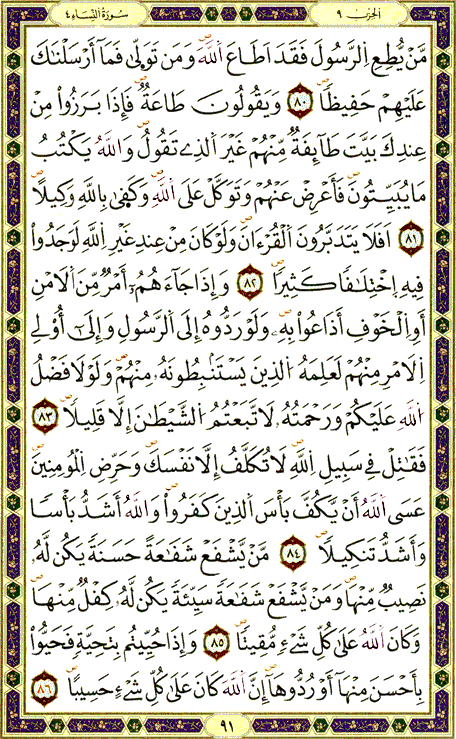 سُورَةُ النِّسَاءِ ٤ الحزب ٩
مَّنْ يُّطِعِ اِ۬لرَّسُولَ فَقَدَ اَطَاعَ اَ۬للَّهَ وَمَن تَوَلّ۪ىٰ فَمَآ أَرْسَلْنَٰكَ
عَلَيْهِمْ حَفِيظاٗ ٨٠ وَيَقُولُونَ طَاعَةٞ فَإِذَا بَرَزُواْ مِنْ
عِندِكَ بَيَّتَ طَآئِفَةٞ مِّنْهُمْ غَيْرَ اَ۬لذِے تَقُولُ وَاللَّهُ يَكْتُبُ
مَا يُبَيِّتُونَ فَأَعْرِضْ عَنْهُمْ وَتَوَكَّلْ عَلَى اَ۬للَّهِ وَكَف۪ىٰ بِاللَّهِ وَكِيلاً
٨١ اَفَلَا يَتَدَبَّرُونَ اَ۬لْقُرْءَانَ وَلَوْ كَانَ مِنْ عِندِ غَيْرِ اِ۬للَّهِ لَوَجَدُواْ
فِيهِ اِ۪خْتِلَٰفاٗ كَثِيراٗ ٨٢ وَإِذَا جَآءَهُمُۥٓ أَمْرٞ مِّنَ اَ۬لَامْنِ
أَوِ اِ۬لْخَوْفِ أَذَاعُواْ بِهِۦ وَلَوْ رَدُّوهُ إِلَى اَ۬لرَّسُولِ وَإِلَىٰٓ أُوْلِے
اِ۬لَامْرِ مِنْهُمْ لَعَلِمَهُ اُ۬لذِينَ يَسْتَنۢبِطُونَهُۥ مِنْهُمْ وَلَوْلَا فَضْلُ
اُ۬للَّهِ عَلَيْكُمْ وَرَحْمَتُهُۥ لَاتَّبَعْتُمُ اُ۬لشَّيْطَٰنَ إِلَّا قَلِيلاٗ ٨٣
فَقَٰتِلْ فِے سَبِيلِ اِ۬للَّهِ لَا تُكَلَّفُ إِلَّا نَفْسَكَ وَحَرِّضِ اِ۬لْمُومِنِينَ
عَسَى اَ۬للَّهُ أَنْ يَّكُفَّ بَأْسَ اَ۬لذِينَ كَفَرُواْ وَاللَّهُ أَشَدُّ بَأْساٗ
وَأَشَدُّ تَنكِيلاٗ ٨٤ مَّنْ يَّشْفَعْ شَفَٰعَةً حَسَنَةٗ يَكُن لَّهُۥ
نَصِيبٞ مِّنْهَا وَمَنْ يَّشْفَعْ شَفَٰعَةٗ سَيِّئَةٗ يَكُن لَّهُۥ كِفْلٞ مِّنْهَا
وَكَانَ اَ۬للَّهُ عَلَىٰ كُلِّ شَےْءٖ مُّقِيتاٗ ٨٥ وَإِذَا حُيِّيتُم بِتَحِيَّةٖ فَحَيُّواْ
بِأَحْسَنَ مِنْهَآ أَوْ رُدُّوهَآ إِنَّ اَ۬للَّهَ كَانَ عَلَىٰ كُلِّ شَےْءٍ حَسِيباً ٨٦
٩١